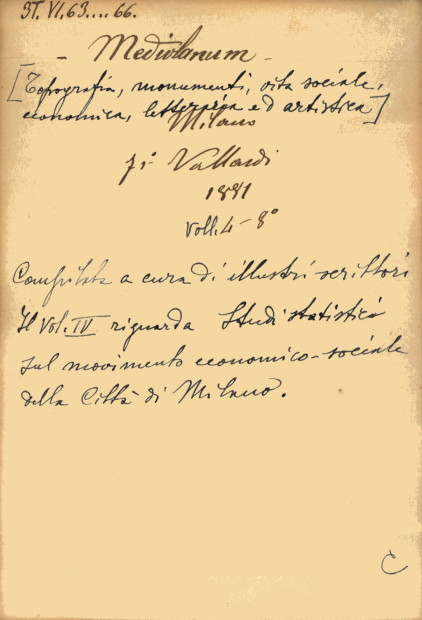 ST. VI. 63....66.
- Mediolanum -
[Topografia, monumenti, vita sociale,
economica, letteraria ed artistica]
Milano
Vallardi
1881
Voll. 4 - 8°
Compilata a cura di illustri scrittori
Il Vol. IV riguarda Studi statistici
sul movimento economico-sociale
della Città di Milano.
C